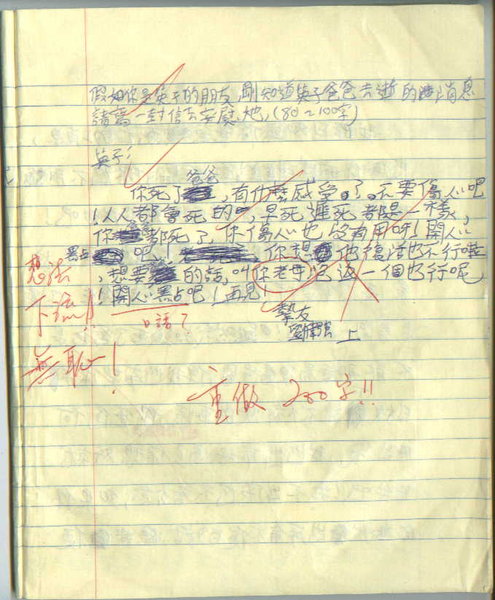 假如你是英子的朋友,剛知道英子爸爸去逝的消息
請寫一封信去安慰她,(80~100字)
英子:
爸爸
你死了,有什麼感受。了。不要傷心吧
!人人都會死的吧,早死遲死都是一樣,
你都死了,你傷心也沒有用呀!開心
點吧!你想他復活也不行啦
,想要的話,叫你老母返一個也行呢
!開心點吧!再見!
摯友
上
想法
下流!!
無恥!
口語?
重做 200字!!